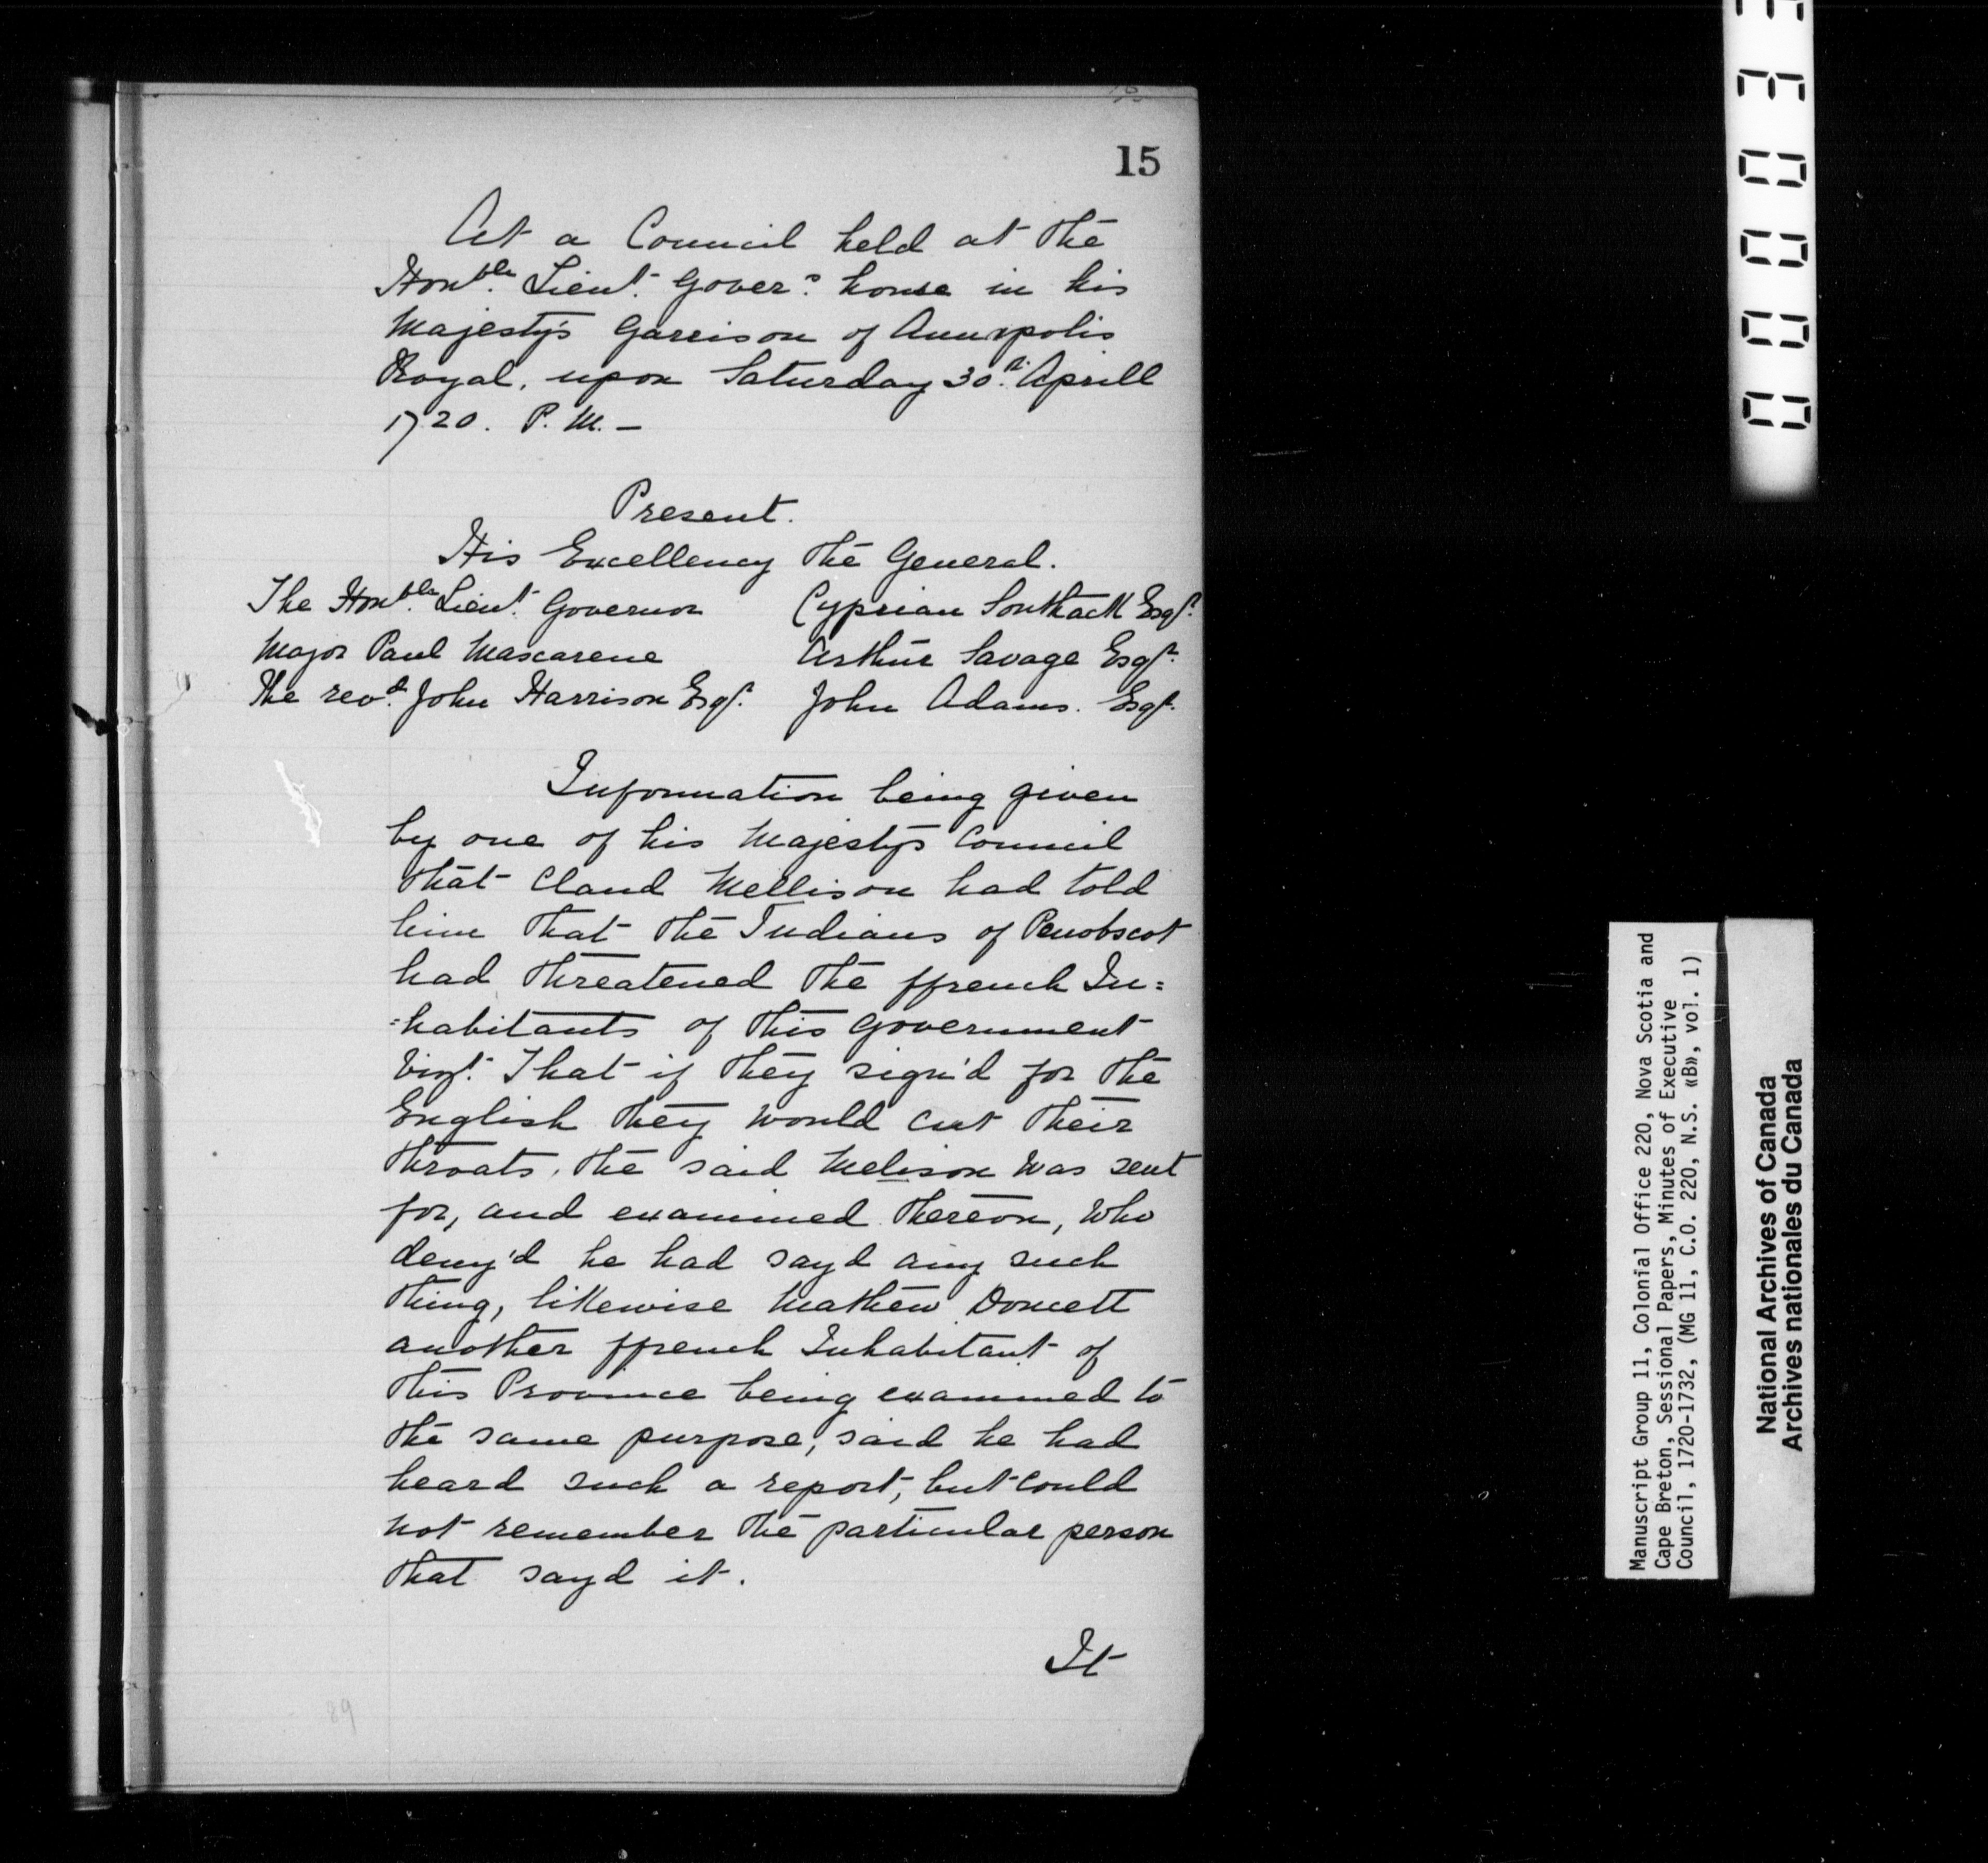 15
At a Council held at the
Honble. Lieut. Gover.s house in his
Majesty's Garrison of Annapolis
Royal, upon Saturday 30th. Aprill
1720. P. M. —
Present.
His Excellency the General.
The Honble. Lieut. Governor Cyprian Southack Esqr.
Major Paul Mascarene Arthur Savage Esqr.
The revd. John Harrison Esqr. John Adams. Esqr.
Information being given
by one of his Majestys Council
that Claud Mellison had told
him that the Indians of Penobscot
had threatened the ffrench In=
=habitants of this Government
Vizt. That if they sign'd for the
English they would cut their
throats, the said Melison was sent
for, and examined thereon, who
deny'd he had sayd any such
thing, likewise Mathew Doucett
another ffrench Inhabitant of
this Province being examined to
the same purpose, said he had
heard such a report, but could
not remember the particular person
that sayd it.
It
89
Manuscript Group 11, Colonial Office 220, Nova Scotia and
Cape Breton, Sessional Papers, Minutes of Executive
Council, 1720-1732, (MG 11, C.O. 220, N.S. «B», vol. 1)
National Archives of Canada
Archives nationales du Canada